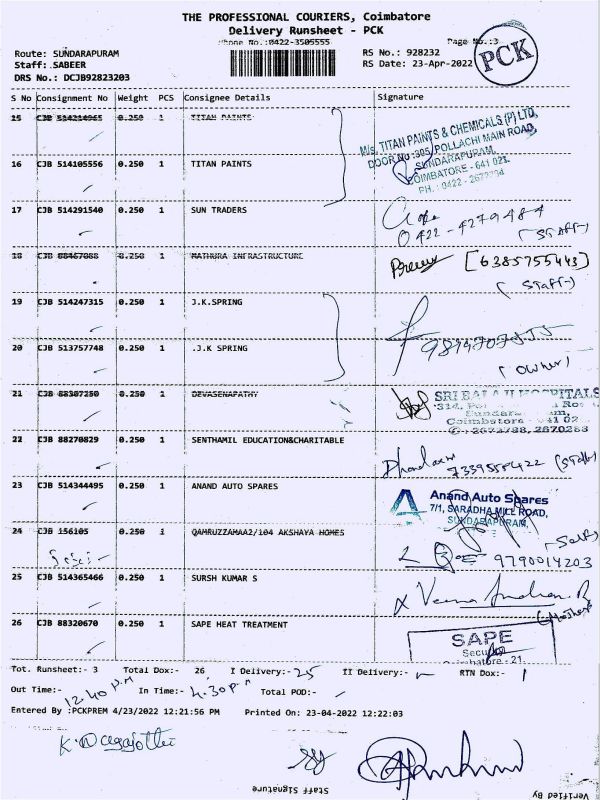 THE PROFESSIONAL COURIERS, Coimbatore
Delivery Runsheet - PCK
Phone No.:0422-3505555 Page No.:3
Route: SUNDARAPURAM RS No.: 928232 PCK
Staff: .SABEER RS Date: 23-Apr-2022
DRS No.: DCJB92823203
S No Consignment No Weight PCS Consignee Details Signature
15 CJB 514214965 0.250 1 TITAN PAINTS
M/s. TITAN PAINTS & CHEMICALS (P) LTD,
DOOR NO :395, POLLACHI MAIN ROAD,
16 CJB 514105556 0.250 1 TITAN PAINTS SUNDARAPURAM,
COIMBATORE - 641 021.
PH.: 0422 -
17 CJB 514291540 0.250 1 SUN TRADERS
0422 - 4279484
(STAFF)
18 CJB 88467088 0.250 1 MATHURA INFRASTRUCTURE [6385755443]
(STAFF)
19 CJB 514247315 0.250 1 J.K.SPRING
20 CJB 513757748 0.250 1 .J.K SPRING
(OWNER)
21 CJB 88307250 0.250 1 DEVASENAPATHY SRI BALAJI HOSPITALS
314,
Coimbatore
2673788, 2670288
22 CJB 88270829 0.250 1 SENTHAMIL EDUCATION&CHARITABLE
(Staff)
23 CJB 514344495 0.250 1 ANAND AUTO SPARES Anand Auto Spares
7/1, SARADHA MILL ROAD,
SUNDARAPURAM,
24 CJB 156105 0.250 1 QAMRUZZAMAA2/104 AKSHAYA HOMES
9790014203
25 CJB 514365466 0.250 1 SURSH KUMAR S
26 CJB 88320670 0.250 1 SAPE HEAT TREATMENT SAPE
Tot. Runsheet:- 3 Total Dox:- 26, I Delivery:- 25 II Delivery:- RTN Dox:- 1
Out Time:- 12.40 PM In Time:- 4.30 P Total POD:-
Entered By :PCKPREM 4/23/2022 12:21:56 PM Printed On: 23-04-2022 12:22:03
Staff Signature Verified By